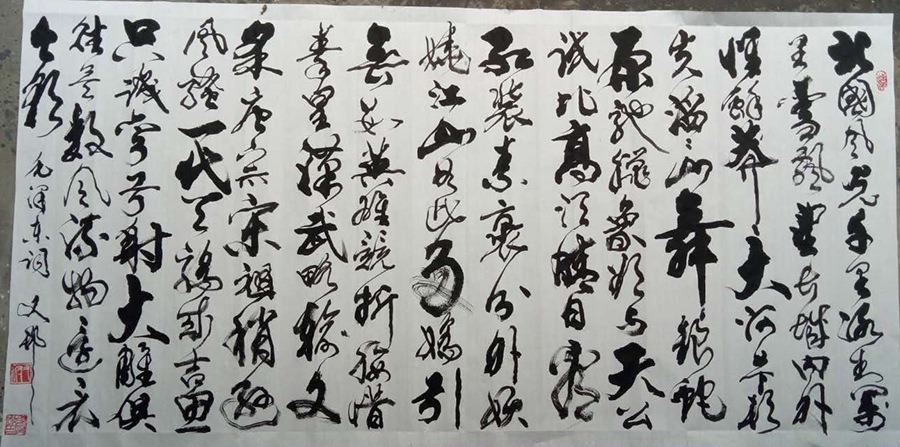 北國风光千里冰封萬
里雪飄望長城内外
惟餘莽〻大河上下顿
失滔〻山舞銀蛇
原驰蠟象欲与天公
试比高须晴日看
红装素裹分外妖
娆江山如此多嬌引
無数英雄競折腰惜
秦皇漢武略输文
采唐宗宋祖稍逊
风骚一代天骄成吉思
只识弯弓射大雕俱
往矣数风流物还看
今朝 毛泽东词